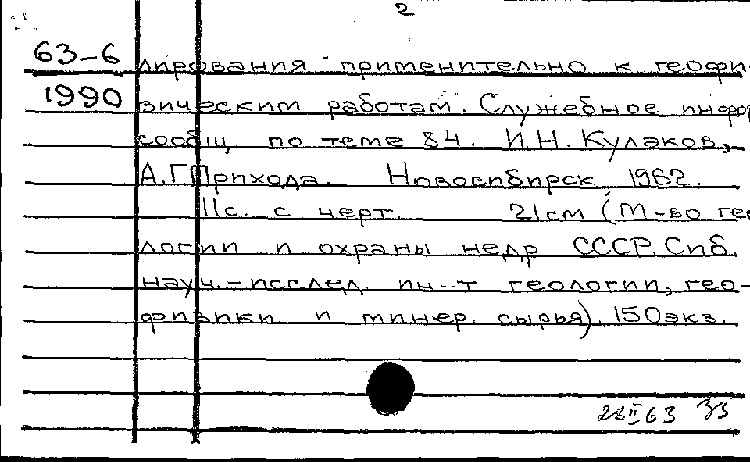 2
63-6 лирования применительно к геофи-
1990 зическим работам. Служебное инфор
сообщ по теме 84. И.Н. Кулаков,
А.Г Приходa. Новосибирск 1962.
11с. с черт. 21см (М-во гео
логии и охраны недр СССР. Сиб.
науч.-исслед. ин-т геологии, гео-
физики и минер. сырья). 150экз.
22 II 63